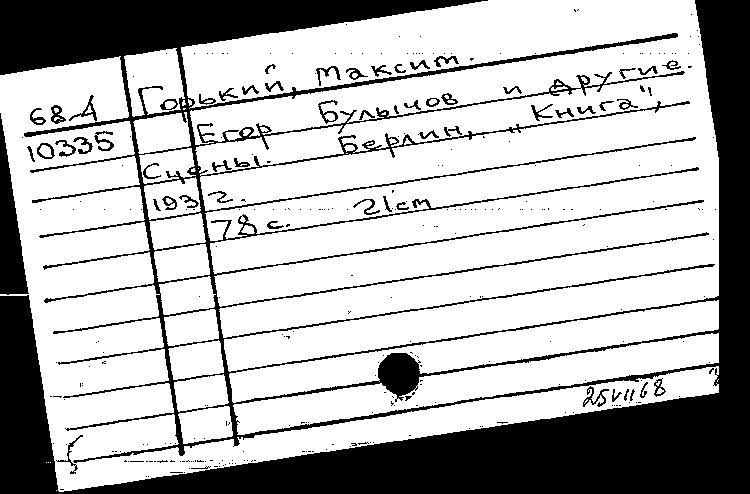 68A Горький, Максим.
10335 Егор Булычов и другие.
Сцены. Берлин, „Книга",
1932.
78 с. 21cm
25VII68